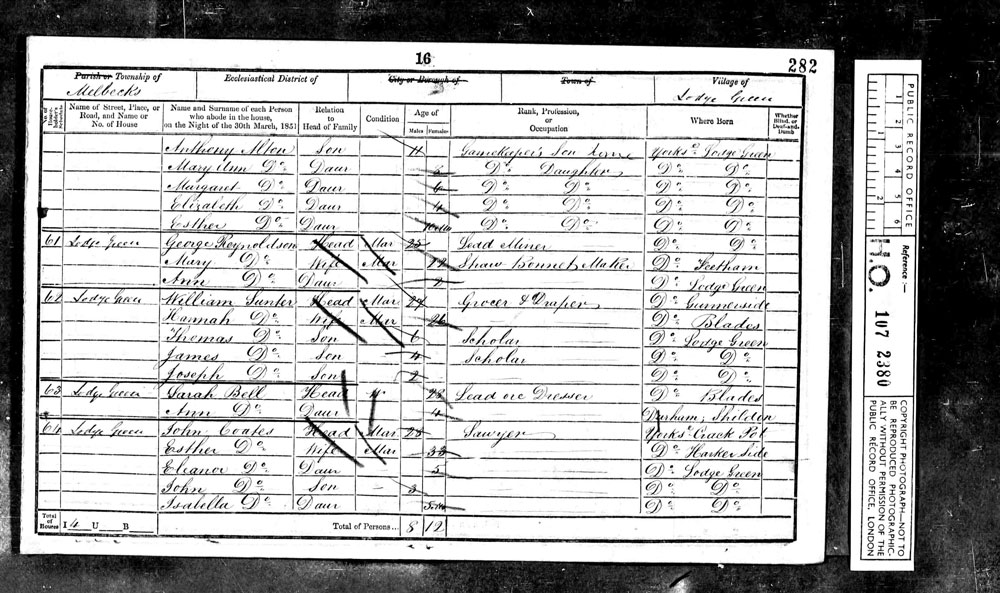 16
282
Parish or Township of
Melbecks
Ecclesiastical District of
City or Borough of
Town of
Village of
Lodge Green
No. of House-holder's Schedule
Name of Street, Place, or Road, and Name or No. of House
Name and Surname of each Person who abode in the house, on the Night of the 30th March, 1851
Relation to Head of Family
Condition
Age of
Males Females
Rank, Profession, or Occupation
Where Born
Whether Blind, or Deaf-and-Dumb
Anthony Alton Son 11 Gamekeeper's Son Yorks Lodge Green
Mary Ann Do Daur 8 Do Daughter Do Do
Margaret Do Daur 6 Do Do Do Do
Elizabeth Do Daur 4 Do Do Do Do
Esther Do Daur Do Do Do Do
61 Lodge Green George Reynoldson Head Mar 25 Lead Miner Do Do
Mary Do Wife Mar Straw Bonnet Maker Do Feetham
Ann Do Daur 2 Do Lodge Green
62 Lodge Green William Sunter Head Mar 27 Grocer & Draper Do Gunnerside
Hannah Do Wife Mar 26 Do Blades
Thomas Do Son 6 Scholar Do Lodge Green
James Do Son 4 Scholar Do Do
Joseph Do Son 2 Do Do
63 Lodge Green Sarah Bell Head Lead ore Dresser Do Blades
Ann Do Daur 4 Durham, Shildon
64 Lodge Green John Coates Head Mar 28 Sawyer Yorks Crack Pot
Esther Do Wife Mar 33 Do Harker Side
Eleanor Do Daur 5 Do Lodge Green
John Do Son 3 Do Do
Isabella Do Daur Do Do
Total of Houses
I 4 U B
Total of Persons... 8 12
PUBLIC RECORD OFFICE
1 2 3 4 5 6
1 2
Reference:-
H.O. 107 2380
COPYRIGHT PHOTOGRAPH—NOT TO BE REPRODUCED PHOTOGRAPHIC-ALLY WITHOUT PERMISSION OF THE PUBLIC RECORD OFFICE, LONDON